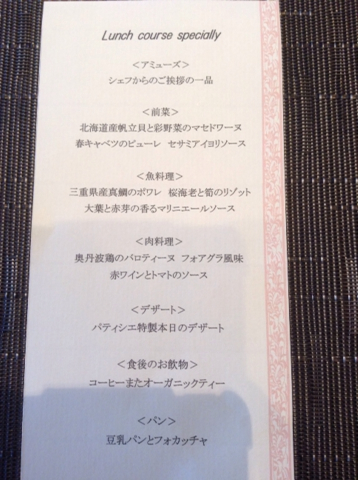 Lunch course specially
＜アミューズ＞
シェフからのご挨拶の一品
＜前菜＞
北海道産帆立貝と彩野菜のマセドワーヌ
春キャベツのピューレ　セサミアイヨリソース
＜魚料理＞
三重県産真鯛のポワレ　桜海老と筍のリゾット
大葉と赤芽の香るマリニエールソース
＜肉料理＞
奥丹波鶏のバロティーヌ　フォアグラ風味
赤ワインとトマトのソース
＜デザート＞
パティシエ特製本日のデザート
＜食後のお飲物＞
コーヒーまたオーガニックティー
＜パン＞
豆乳パンとフォカッチャ